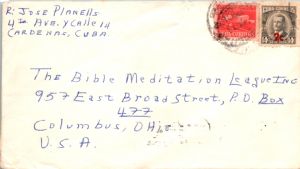 R. JOSE PLANELLS
4TA AVE. Y CALLE 14
CARDENAS, CUBA.
The Bible Meditation League Inc
957 East Broad Street, P.O. Box
477
Columbus, Ohio
U.S.A.